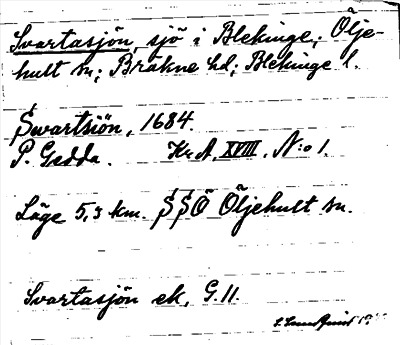 Svartasjön, sjö i Blekinge; Ölje-
hult sn; Bräkne hd; Blekinge l.
Swartsiön, 1684.
P. Gedda. Kr. A. XVIII. N:o 1.
Läge 5,3 km. SSÖ Öljehult sn.
Svartasjön ek, G. 11.